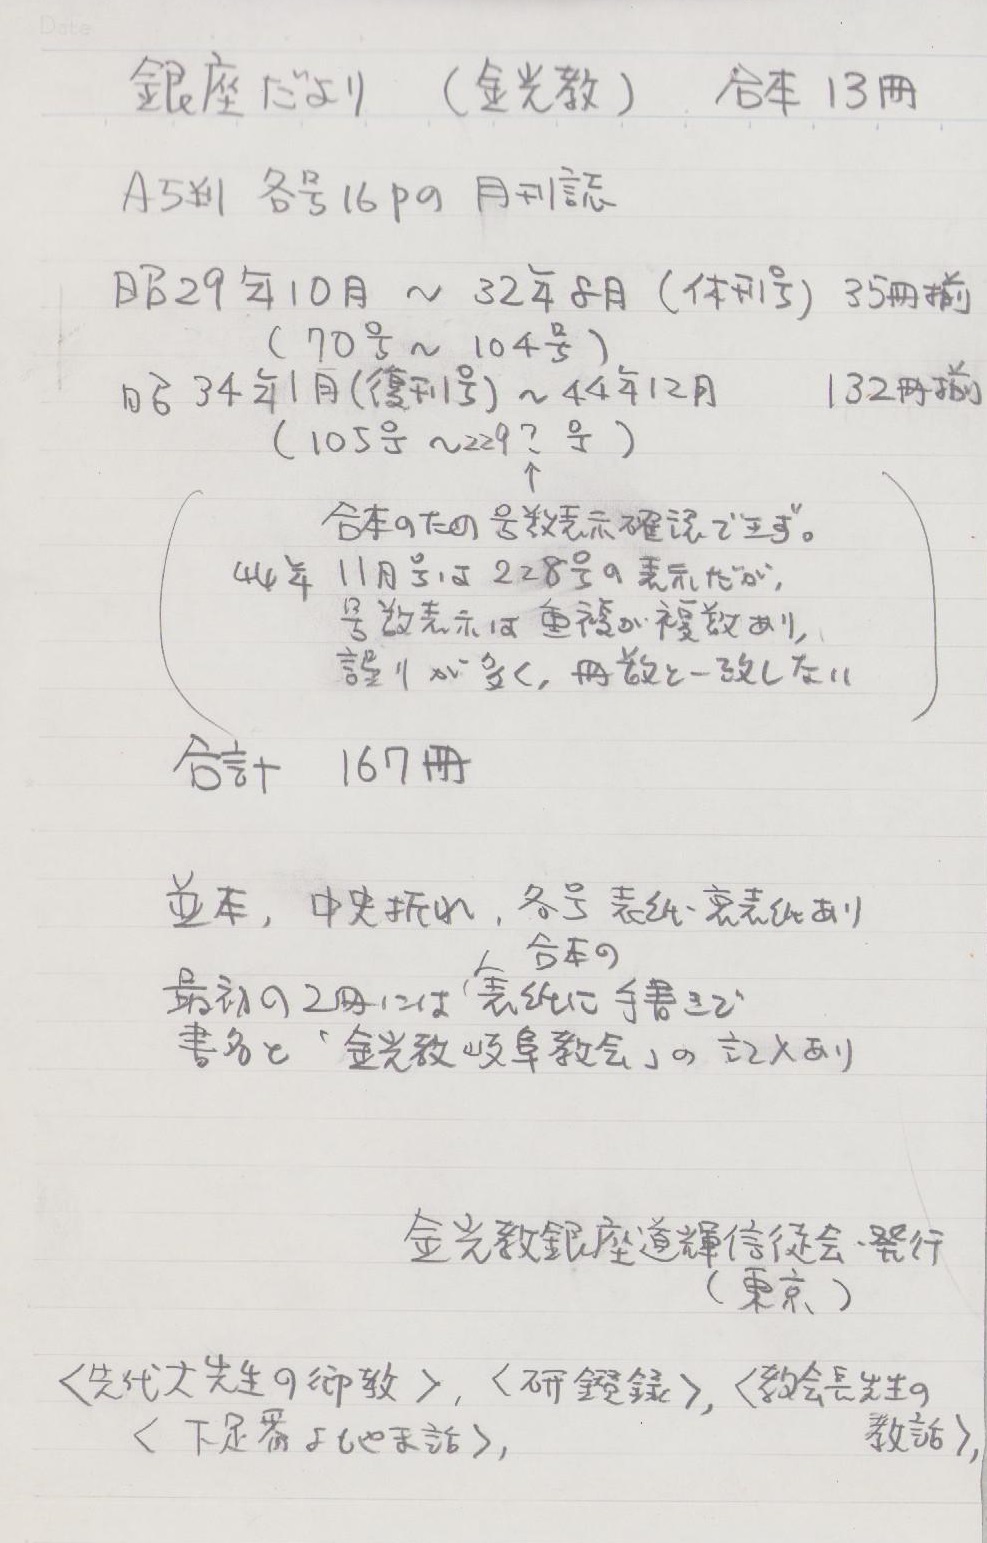 Date
銀座だより （金光教） 合本 13冊
A5判 各号16pの 月刊誌
昭29年10月 〜 32年8月（休刊号） 35冊揃
（70号〜 104号）
昭34年1月（復刊号）〜44年12月 132冊揃
（105号 〜229？号）
↑
合本のため 号数表示確認できず。
44年 11月号は 228号の 表示だが，
号数表示は 重複が複数あり，
誤りが多く，冊数と一致しない
合計 167冊
並本，中央折れ，各号 表紙・裏表紙あり
合本の
最初の2冊には 表紙に 手書きで
書名と「金光教岐阜教会」の 記入あり
金光教銀座道輝信徒会・発行
（東京）
〈先代大先生の御教〉，〈研鑽録〉，〈教会長先生の
〈下足番よもやま話〉， 教話〉，